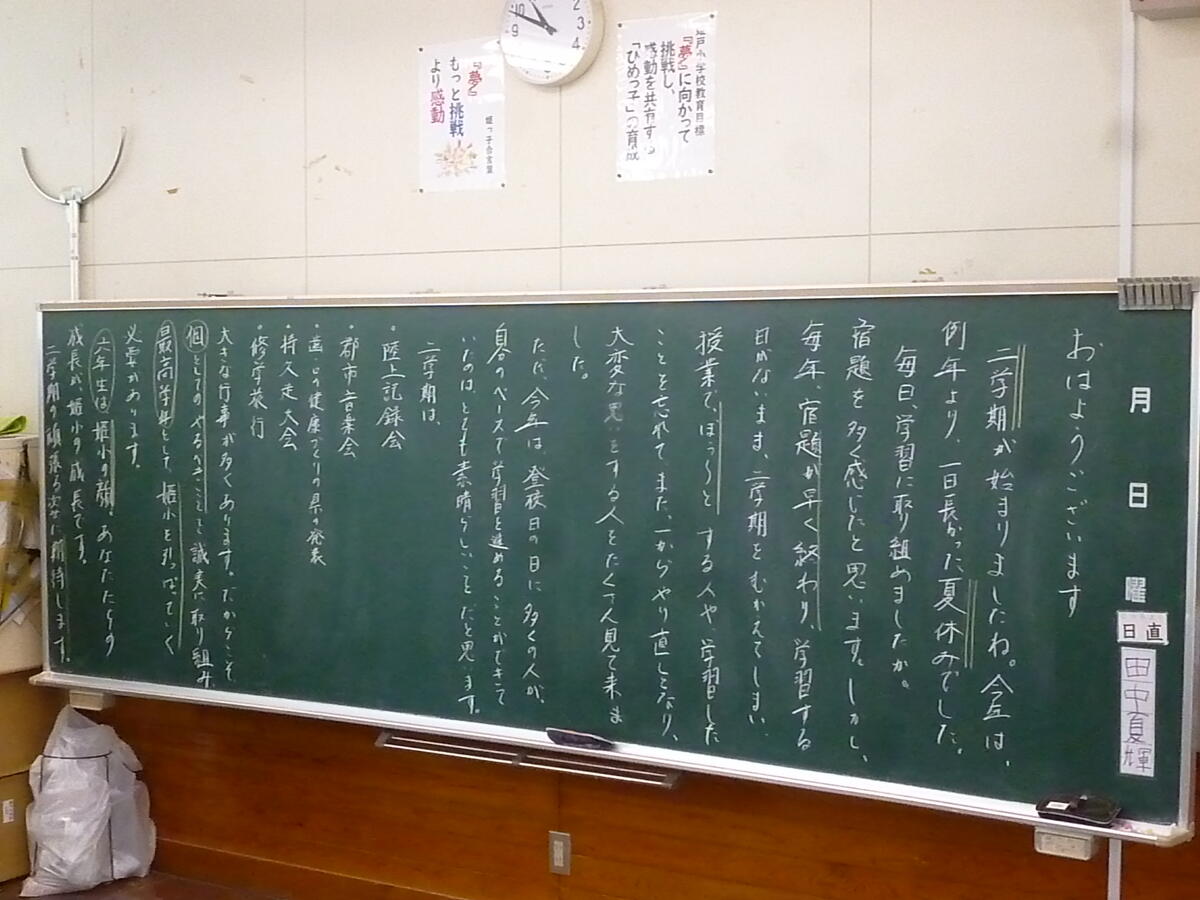 姫戸小学校教育目標
『夢』に向かって
挑戦し、
感動を共有する
「ひめっ子」の育成
姫っ子合言葉
『夢』
もっと挑戦!
より感動
10
9
2
3
4
月
日
曜
日直
田中夏輝
おはようございます
二学期が始まりましたね。今年は、
例年より、一日長かった夏休みでした。
毎日、学習に取り組めましたか。
宿題を多く感じたと思います。しかし、
毎年、宿題が早く終わり、学習する
日がないまま、二学期をむかえてしまい、
授業で、ぼーっと する人や、学習した
ことを忘れて、また、一からやり直しとなり、
大変な思いをする人をたくさん見て来ま
した。
ただ、今年は、登校日の日に多くの人が、
自分のペースで学習を進めることができて
いたのは、とても素晴らしいことだと思います。
二学期は、
・陸上記録会
・郡市音楽会
・歯と口の健康づくりの県の発表
・持久走大会
・修学旅行
大きな行事が多くあります。だからこそ、
個としてのやるべきことを誠実に取り組み、
最高学年として、姫小を引っぱっていく
必要があります。
六年生は、姫小の顔。あなたたちの
成長が姫小の成長です。
二学期の頑張る姿に期待します。